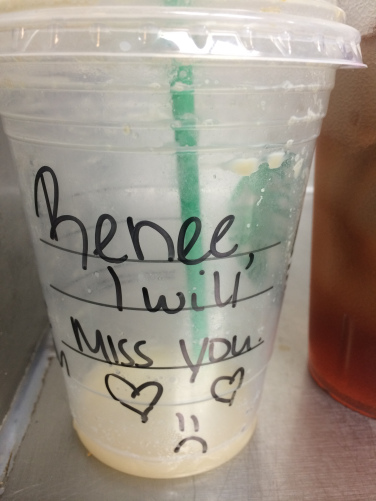 Renee,
I will
Miss you.